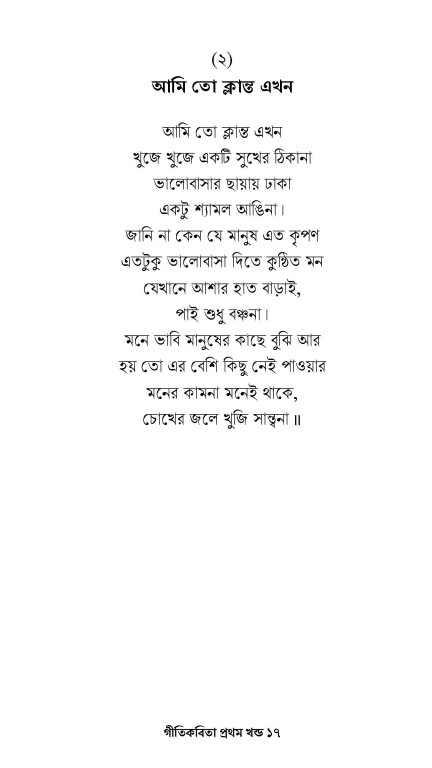 (২)
আমি তো ক্লান্ত এখন
আমি তো ক্লান্ত এখন
খুজে খুজে একটি সুখের ঠিকানা
ভালোবাসার ছায়ায় ঢাকা
একটু শ্যামল আঙিনা।
জানি না কেন যে মানুষ এত কৃপণ
এতটুকু ভালোবাসা দিতে কুণ্ঠিত মন
যেখানে আশার হাত বাড়াই,
পাই শুধু বঞ্চনা।
মনে ভাবি মানুষের কাছে বুঝি আর
হয় তো এর বেশি কিছু নেই পাওয়ার
মনের কামনা মনেই থাকে,
চোখের জলে খুজি সান্ত্বনা॥
গীতিকবিতা প্রথম খন্ড ১৭